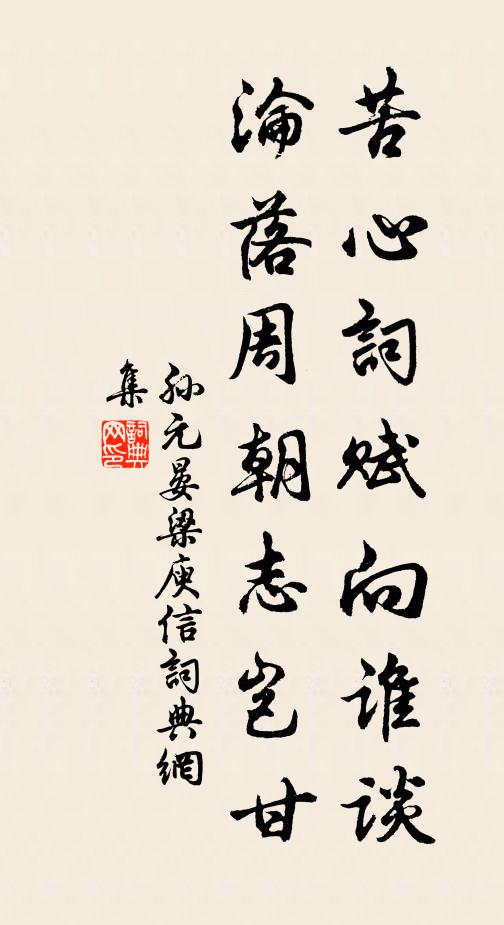 苦心詞賦向誰談
淪落周朝志豈甘
孫元晏梁庾信詞典網
集
詞典网印